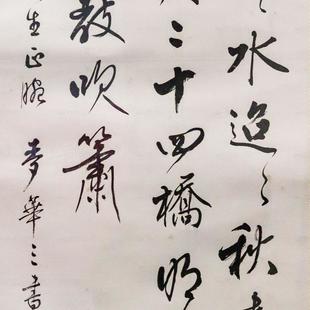 水迢〻秋
二十四橋明
教吹簫
生正腕
夢華三書